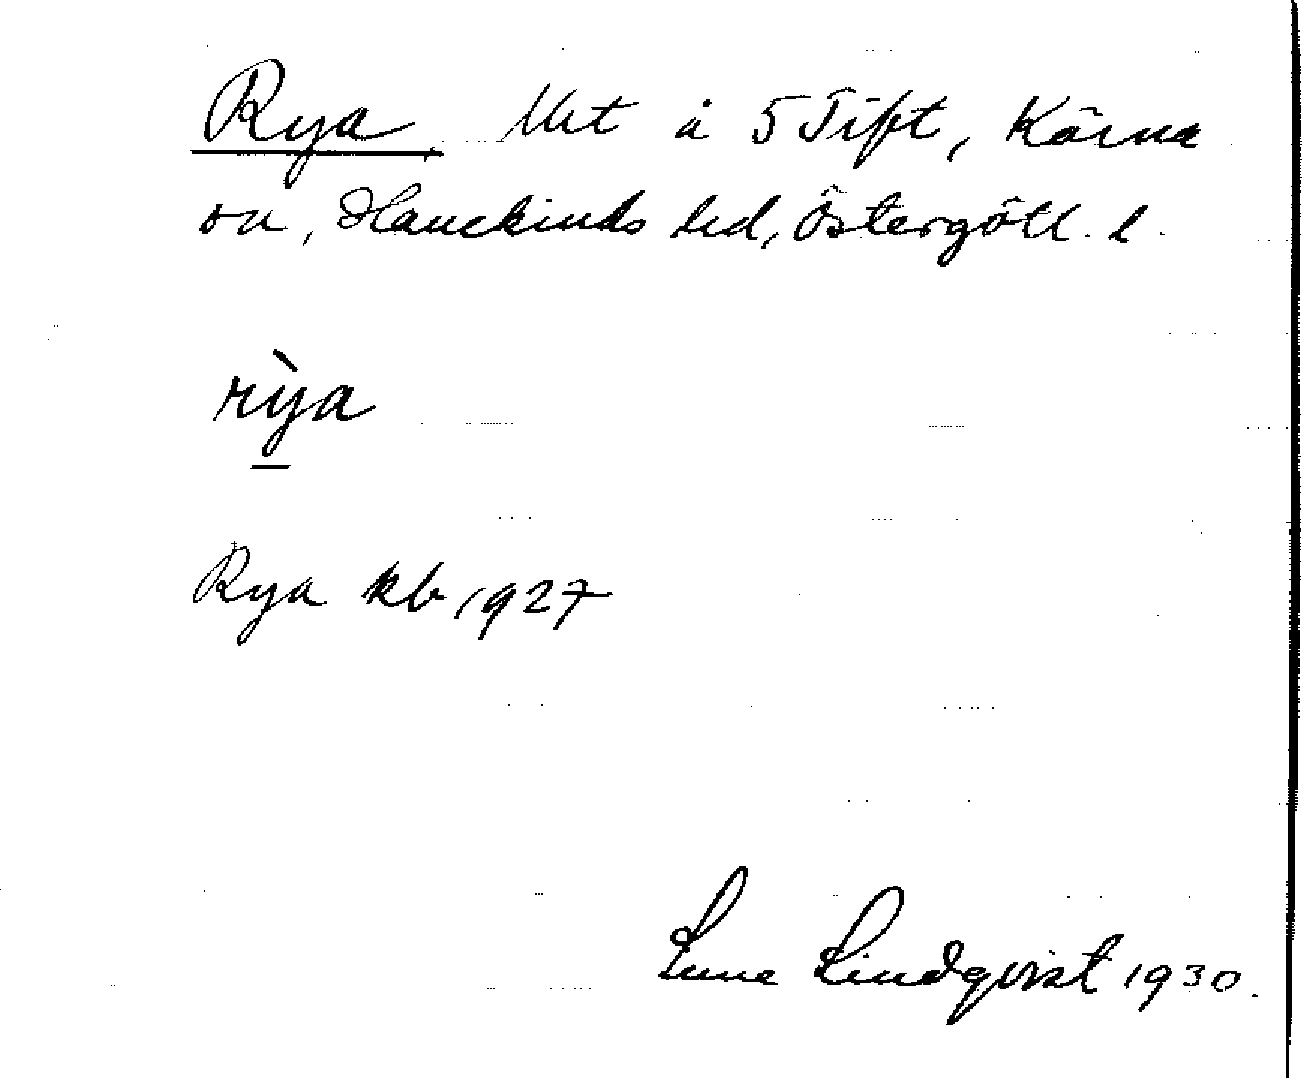 Rya, Utt å 5 Tift, Kärna
sn, Hanekinds hd, Östergötl. l.
rỳa
Rya kb 1927
Sune Lindqvist 1930.